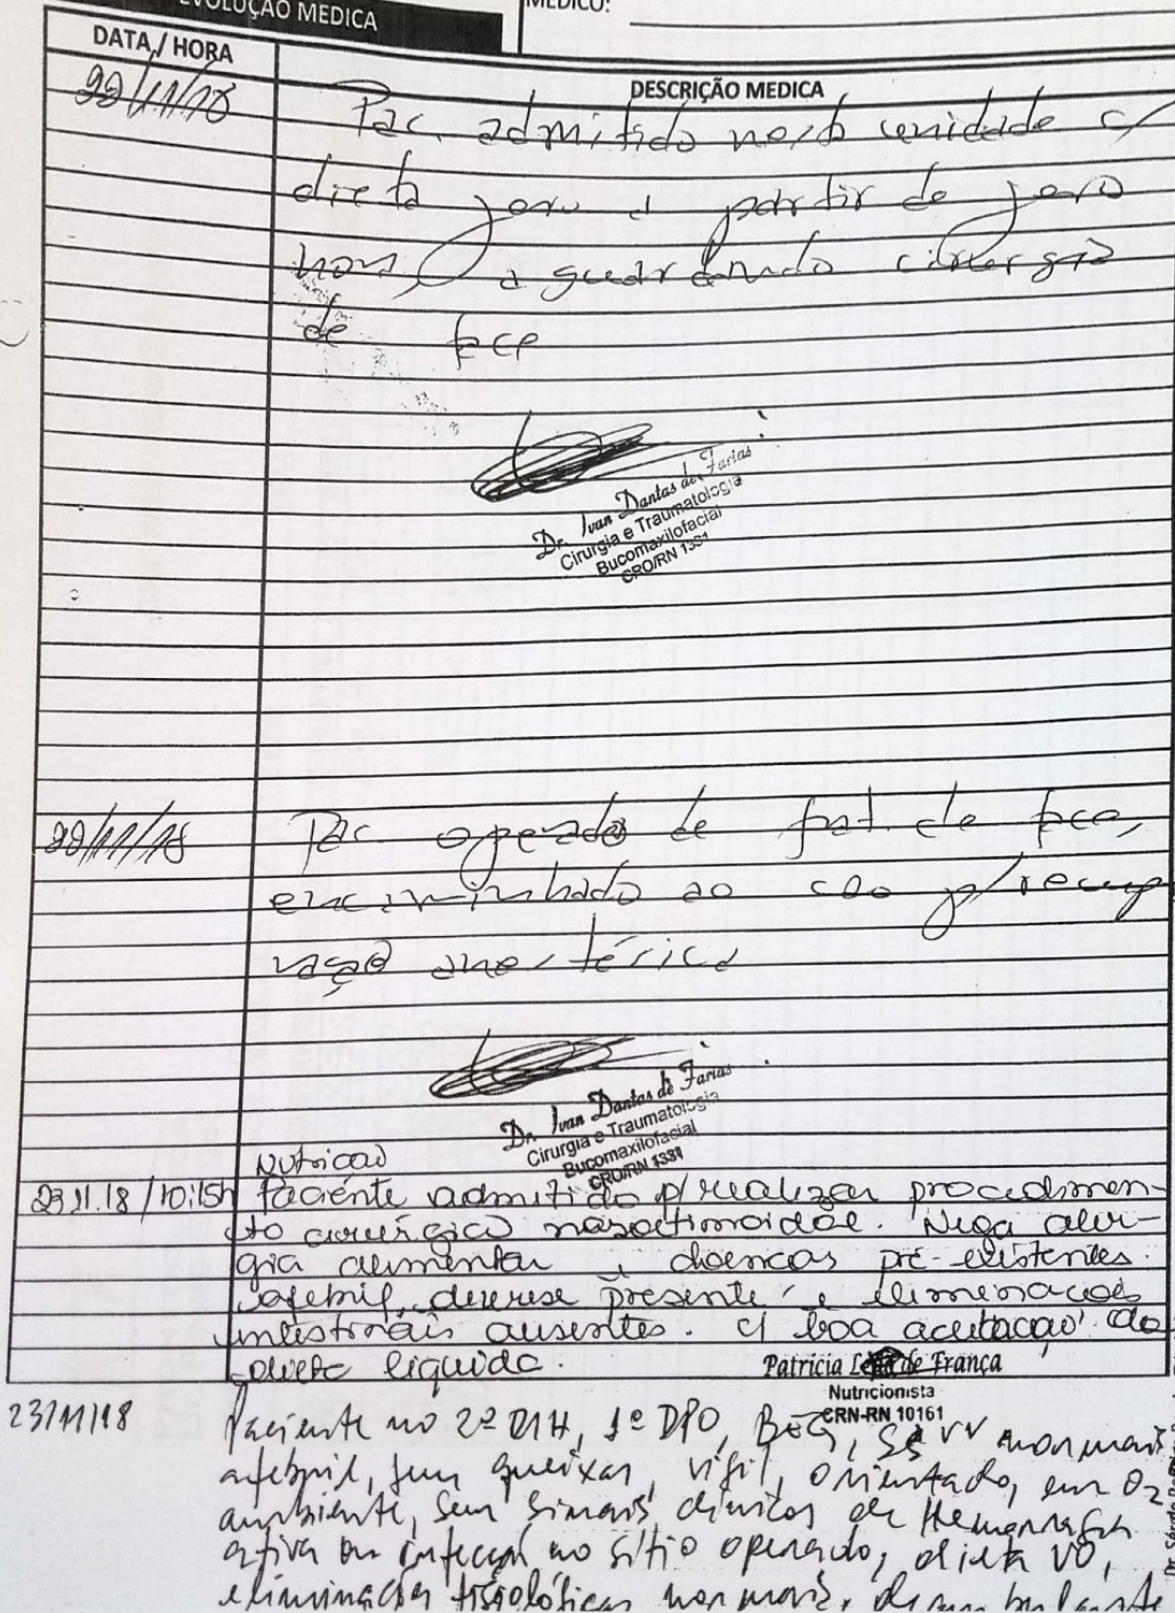 EVOLUÇÃO MEDICA
MEDICO:
DATA / HORA
DESCRIÇÃO MEDICA
22/11/18
Pac. admitido nesta unidade c/
dieta zero a partir de zero
hora, aguardando cirurgia
de face
Dr. Ivan Dantas de Farias
Cirurgia e Traumatologia
Bucomaxilofacial
CRO/RN 1331
22/11/18
Pac. operado de frat. de face,
encaminhado ao p/ recup
ração anestésica
Dr. Ivan Dantas de Farias
Cirurgia e Traumatologia
Bucomaxilofacial
CRO/RN 1331
Nutrição
23.11.18 / 10:15h Paciente admitido p/ realizar procedimen-
to cirúrgico nasoetimoidal. Nega aler-
gia alimentar e doenças pré-existentes.
afebril, diurese presente e eliminações
intestinais ausentes. c/ boa aceitação da
dieta líquida.
Patrícia de França
Nutricionista
CRN-RN 10161
23/11/18
Paciente no 2º DIH, 1º DPO, BEG, SSVV normais
afebril, sem queixas, vígil, orientado, em O2
ambiente, sem sinais clínicos de Hemorragia
ativa ou infecção no sítio operado, dieta VO,
eliminações fisiológicas normais, deambulante